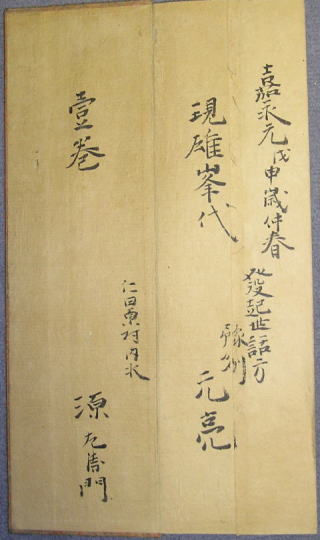 嘉永元戊申歳仲春
發起世話方
現雄峯代
元亮
仁田東村内水
壹巻
源左衛門